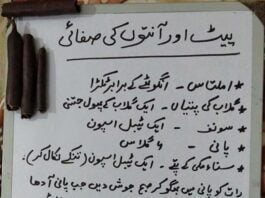 پیٹ اور آنتوں کی صفائی
* املتاس - انگوٹھے کے برابر ٹکڑا
* گلاب کی پتیاں - ایک گلاب کے پھول جتنی
* سونف - ایک ٹیبل اسپون
* پانی - ۴ گلاس
* سناء مکی کے پتے - ایک ٹیبل اسپون (تنکے نکال کر)۔
رات کو پانی میں بھگو کر صبح جوش دیں جب پانی آدھا